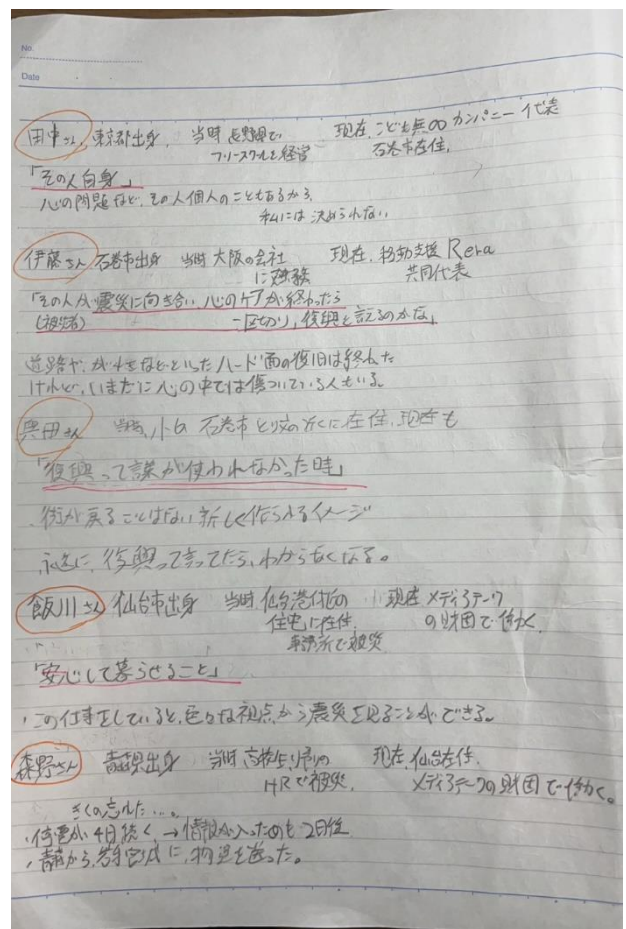 No.
Date
田中さん, 東京都出身, 当時 長野県で 現在, こども∞カンパニー代表
フリースクールを経営 石巻市在住,
「その人自身」
心の問題など, その人個人のこともあるから,
私には決められない
伊藤さん 石巻市出身 当時 大阪の会社 現在, 移動支援 Rera
に勤務 共同代表
「その人が震災に向き合い, 心のケアが終わったら
(被災者) 一区切り, 復興と言えるのかな」
道路や, かべなどといったハード面の復旧は終わった
けれど, いまだに心の中では傷ついている人もいる。
奥田さん 当時, 小6 石巻市 の近くに在住, 現在も
「復興って言葉が使われなかった時」
・街が戻ることはない 新しく作られるイメージ
永遠に, 復興って言ってたら, わからなくなる。
飯川さん 仙台市出身 当時, 仙台港付近の 現在 メディアテーク
住宅に在住, の財団で働く,
事務所で被災
「安心して暮らせること」
・この仕事をしていると, 色々な視点から震災を見ることができる。
森野さん 青森県出身 当時, 高校生, 帰りの 現在, 仙台在住,
HRで被災, メディアテークの財団で働く。
きくの忘れた...。
・停電が4日続く → 情報が入ったのも2日後
・青森から, 岩手宮城に, 物資を送った。